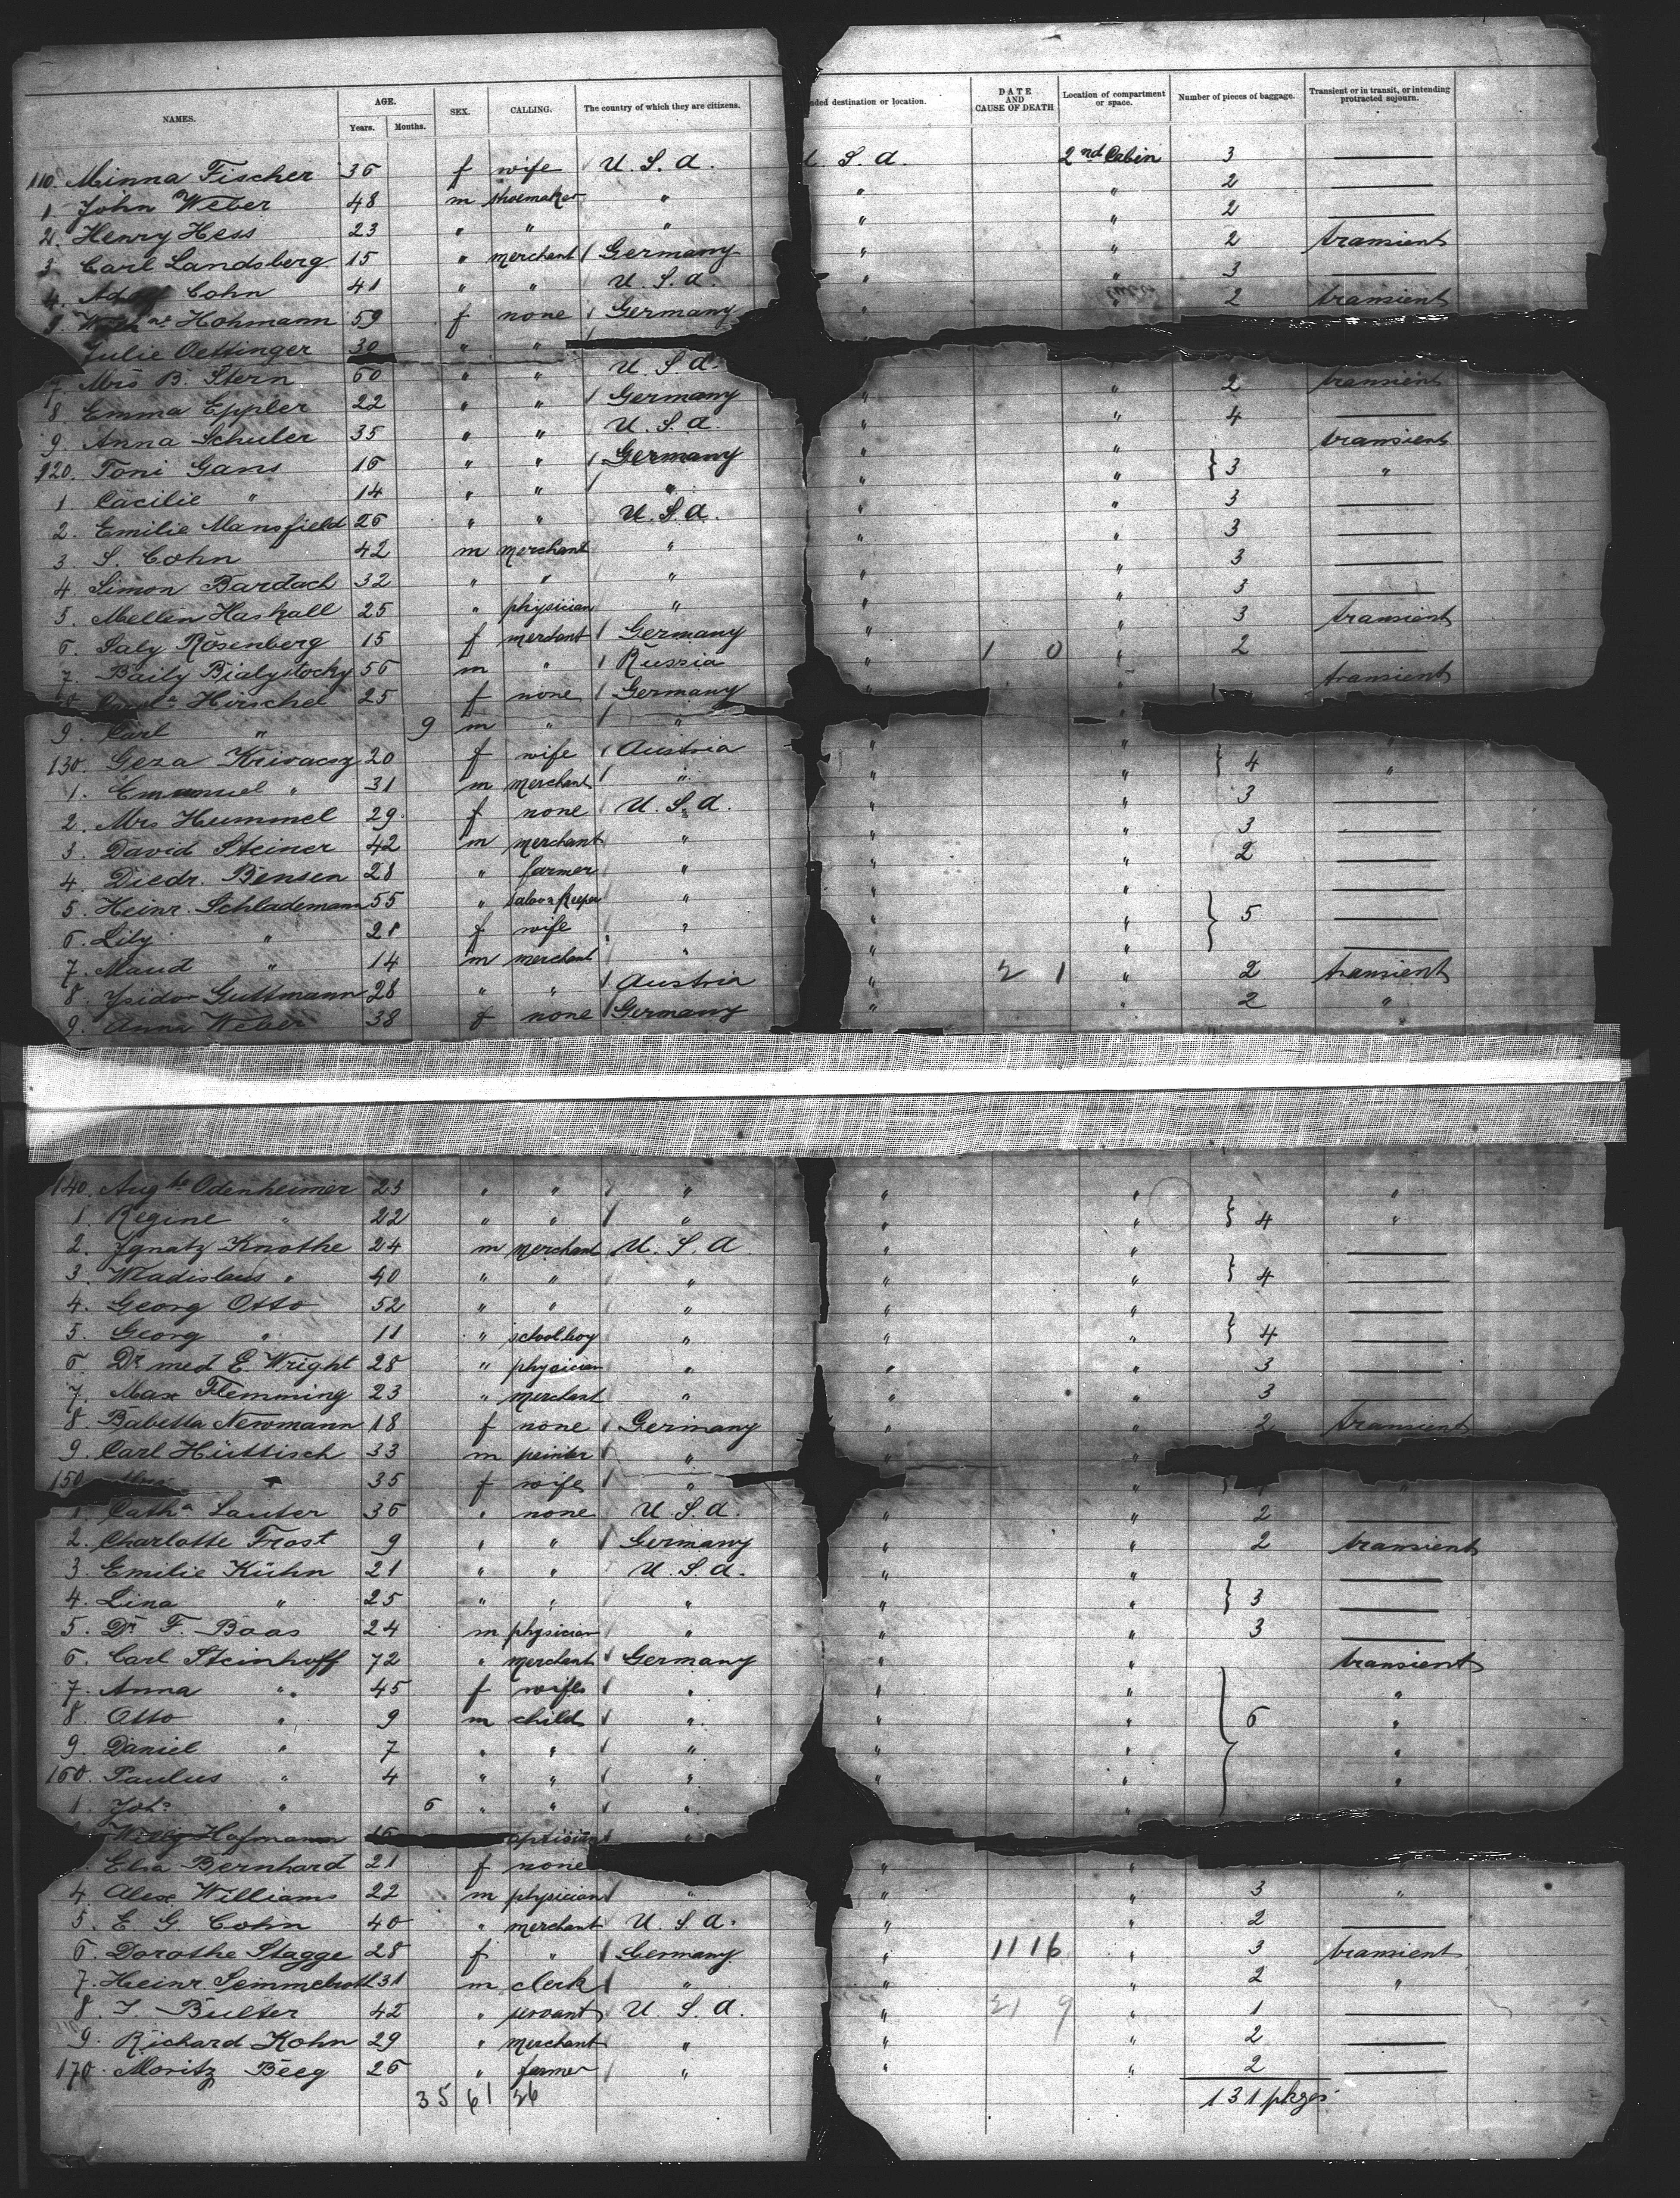 NAMES. AGE. Years. Months. SEX. CALLING. The country of which they are citizens. nded destination or location. DATE AND CAUSE OF DEATH Location of compartment or space. Number of pieces of baggage. Transient or in transit, or intending protracted sojourn.
110. Minna Fischer 36 f wife U. S. A. S. A. 2nd Cabin 3 —
1. John Weber 48 m shoemaker " " " 2 —
2. Henry Hess 23 " " " " " 2 —
3 Carl Landsberg 15 " merchant Germany " " 2 transient
4. Cohn 41 " " U. S. A. " " 3 —
Hohmann 59 f none Germany " 2 transient
Julie Oettinger 30 " "
7 Mrs B. Stern 60 " " U. S. A. "
8 Emma Eppler 22 " " Germany " " 2 transient
9. Anna Schuler 35 " " U. S. A. " " 4 —
120. Toni Gans 16 " " Germany " " transient
1 Cäcilie " 14 " " " " " } 3 "
2. Emilie Mansfield 26 " " U. S. A. " " 3 —
3 S. Cohn 42 m merchant " " " 3 —
4 Simon Bardach 32 " " " " " 3 —
5. Mellin Haskall 25 " physician " " " 3 —
6. Saly Rosenberg 15 f merchant Germany " " 3 transient
7. Baily Bialystocky 56 m " Russia " 1 0 " 2 —
Hirschel 25 f none Germany " " transient
9. Carl " 9 m " " "
130. Geza Krivacsy 20 f wife Austria " "
1. Emanuel " 31 m merchant " " " } 4 "
2. Mrs Hummel 29. f none U. S. A. " " 3 —
3 David Steiner 42 m merchant " " " 3 —
4. Diedr. Bensen 28 " farmer " " " 2 —
5. Heinr. Schlademann 55 " saloonkeeper " " " —
6. Lily " 21 f wife " " " } 5 —
7. Maud " 14 m merchant " " " —
8. Ysidor Guttmann 28 " " Austria " 2 1 " 2 transient
9. Anna Weber 38 f none Germany " " 2 "
140. Augte Odenheimer 23 " " " " " "
1. Regine " 22 " " " " " } 4 "
2. Ignatz Knothe 24 m merchant U. S. A. " " —
3. Wladislaus " 40 " " " " " } 4 —
4. Georg Otto 52 " " " " " —
5. Georg " 11 " schoolboy " " " } 4 —
6. Dr med E. Wright 28 " physician " " " 3 —
7. Max Flemming 23 " merchant " " " 3 —
8 Babetta Newmann 18 f none Germany " " 2 transient
9. Carl Hüttisch 33 m painter " " "
150 " 35 f wife " "
1. Catha Lauter 36 " none U. S. A. " " 2 —
2. Charlotte Frost 9 " " Germany " " 2 transient
3. Emilie Kühn 21 " " U. S. A. " " —
4. Lina " 25 " " " " " } 3 —
5. Dr F. Baas 24 m physician " " " 3 —
6. Carl Steinhoff 72 " merchant Germany " " transient
7. Anna " 45 f wife " " " "
8. Otto " 9 m child " " " } 6 "
9. Daniel " 7 " " " " " "
160. Paulus " 4 " " " " " "
1. Joh. " 6 " " "
Willy Hofmann 16 optician "
Elsa Bernhard 21 f none " "
4. Alex Williams 22 m physician " " " 3 "
5. E. G. Cohn 40 " merchant U. S. A. " " 2 —
6. Dorothe Stagge 28 f " Germany " 1116 " 3 transient
7. Heinr Semmelroth 31 m clerk " " " 2 "
8. J. Butter 42 " servant U. S. A. " 21 9 " 1 —
9. Richard Kohn 29 " merchant " " " 2 —
170. Moritz Beeg 26 " farmer " " " 2 —
35 61 26 131 pkgs.